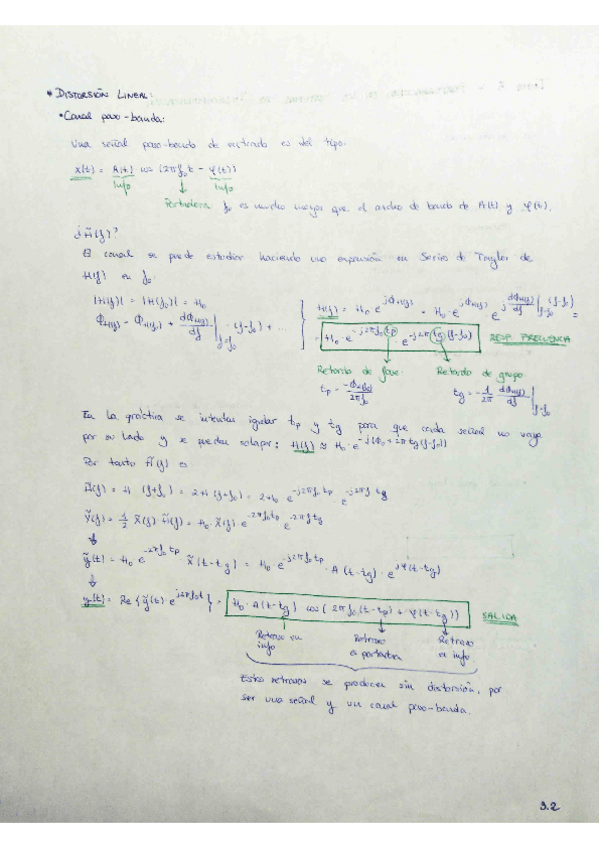 * DISTORSIÓN LINEAL:
• Canal paso-banda:
Una señal paso-banda de entrada es del tipo:
x(t) = A(t) cos (2πf₀t - φ(t))
Info Info
Portadora f₀ es mucho mayor que el ancho de banda de A(t) y φ(t).
¿H̃(f)?
El canal se puede estudiar haciendo una expansión en Series de Taylor de
H(f) en f₀
|H(f)| = |H(f₀)| = H₀
Φ_H(f) = Φ_H(f₀) + dΦ_H(f)/df |_{f=f₀} · (f-f₀) + ...
H(f) = H₀ e^{jΦ_H(f)} = H₀ · e^{jΦ_H(f₀)} e^{j dΦ_H(f)/df |_{f=f₀} (f-f₀)} =
= H₀ · e^{-j2πf₀tp} · e^{-j2πtg(f-f₀)} RESP. FRECUENCIA
Retardo de fase Retardo de grupo
tp = -Φ_H(f₀)/2πf₀ tg = -1/2π dΦ_H(f)/df |_{f=f₀}
En la práctica se intentan igualar tp y tg para que cada señal no vaya
por su lado y se puedan solapar: H(f) ≈ H₀ · e^{-j(Φ₀+2πtg(f-f₀))}
Por tanto H̃(f) es
H̃(f) = H (f+f₀) = 2H(f+f₀) = 2H₀ · e^{-j2πf₀tp} e^{-j2πf tg}
Ỹ(f) = 1/2 X̃(f) H̃(f) = H₀ · X̃(f) · e^{-2πf₀tp} e^{-2πf tg}
ỹ(t) = H₀ e^{-2πf₀tp} x̃(t-tg) = H₀ · e^{-j2πf₀tp} · A(t-tg) · e^{jφ(t-tg)}
y(t) = Re{ỹ(t) · e^{j2πf₀t}} = H₀ · A(t-tg) cos(2πf₀(t-tp) + φ(t-tg)) SALIDA
Retraso en info Retraso en portadora Retraso en info
Estos retrasos se producen sin distorsión, por
ser una señal y un canal paso-banda.
3.2